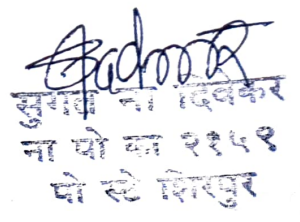 सुगत ना दिवेकर
ना पो का २१५९
पो स्टे शिरपुर